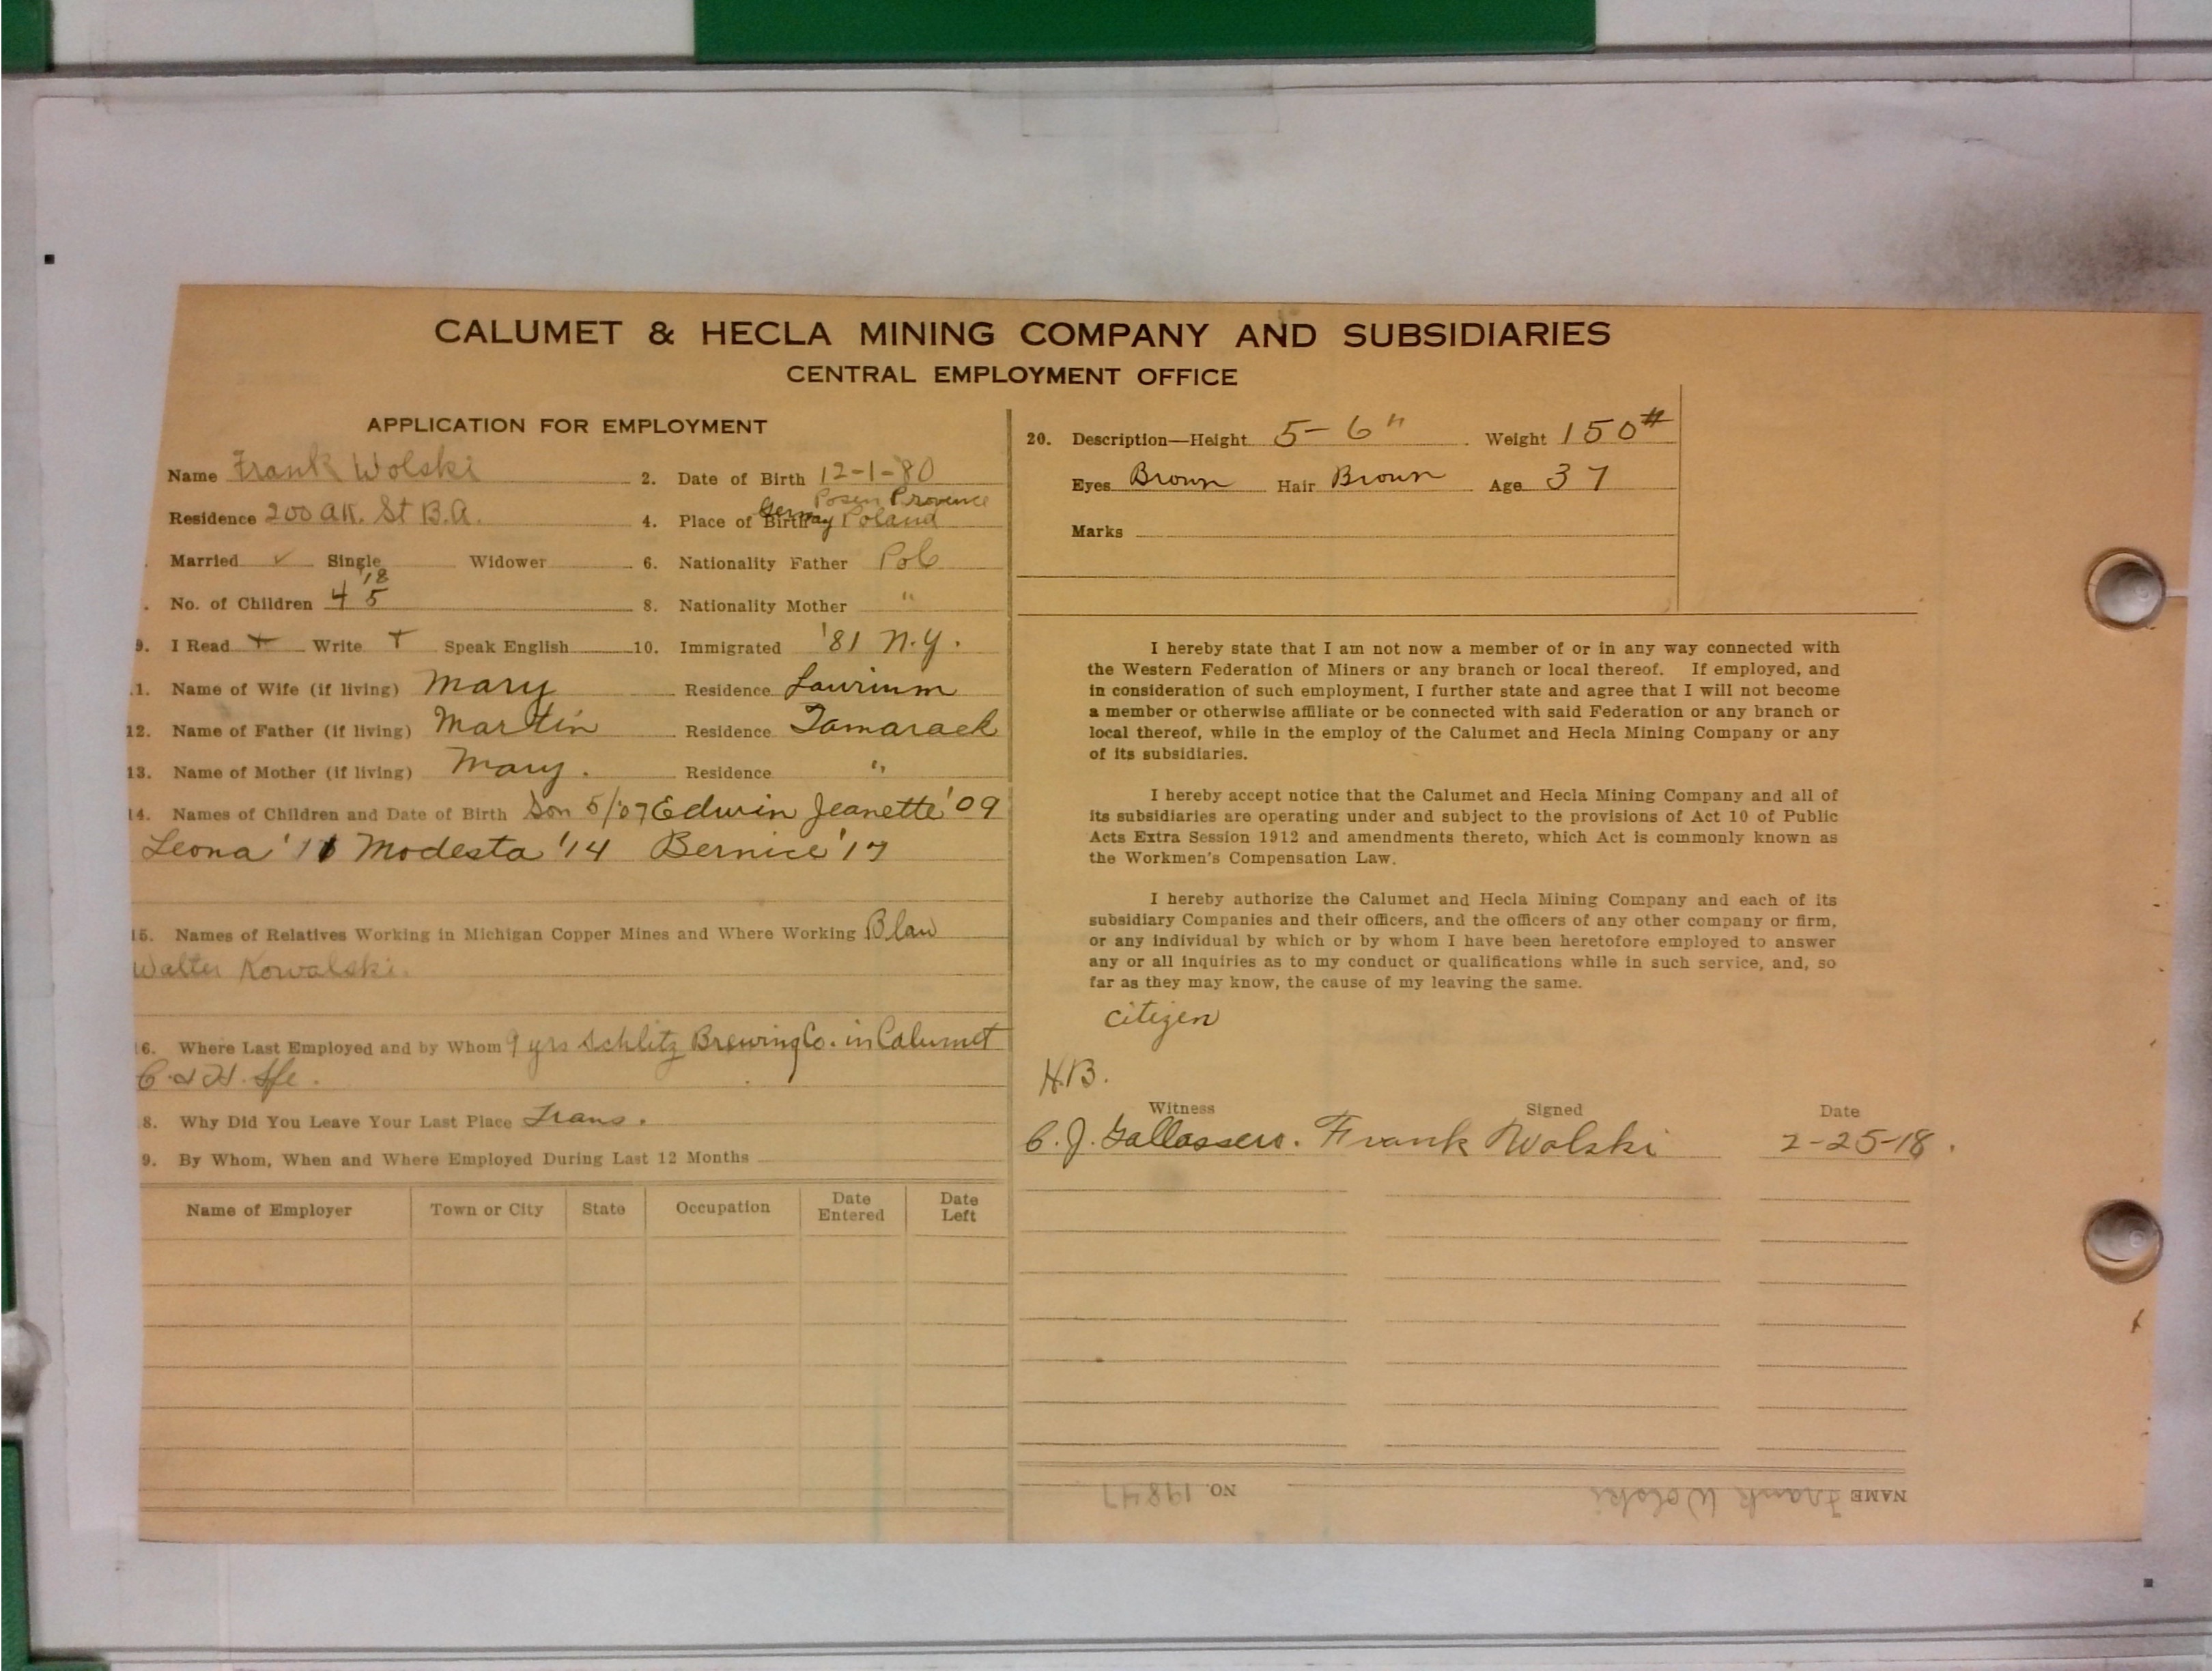 CALUMET & HECLA MINING COMPANY AND SUBSIDIARIES
CENTRAL EMPLOYMENT OFFICE
APPLICATION FOR EMPLOYMENT
Name Frank Wolski 2. Date of Birth 12-1-'80
Posen Provence
Residence 200 St B.A. 4. Place of Birth Germay Poland
Married ✓ Single Widower 6. Nationality Father Pol
'18
. No. of Children 4 5 8. Nationality Mother "
9. I Read + Write + Speak English 10. Immigrated '81 N.Y.
1. Name of Wife (if living) Mary Residence Laurium
12. Name of Father (if living) Martin Residence Tamarack
13. Name of Mother (if living) Mary. Residence "
14. Names of Children and Date of Birth Son 5/'07 Edwin Jeanette '09
Leona '11 Modesta '14 Bernice '17
15. Names of Relatives Working in Michigan Copper Mines and Where Working Blaw
Walter Kowalski.
16. Where Last Employed and by Whom 9 yrs Schlitz Brewing Co. in Calumet
C & H.
8. Why Did You Leave Your Last Place Trans.
9. By Whom, When and Where Employed During Last 12 Months
Name of Employer Town or City State Occupation Date Entered Date Left
20. Description—Height 5-6" Weight 150#
Eyes Brown Hair Brown Age 37
Marks
I hereby state that I am not now a member of or in any way connected with
the Western Federation of Miners or any branch or local thereof. If employed, and
in consideration of such employment, I further state and agree that I will not become
a member or otherwise affiliate or be connected with said Federation or any branch or
local thereof, while in the employ of the Calumet and Hecla Mining Company or any
of its subsidiaries.
I hereby accept notice that the Calumet and Hecla Mining Company and all of
its subsidiaries are operating under and subject to the provisions of Act 10 of Public
Acts Extra Session 1912 and amendments thereto, which Act is commonly known as
the Workmen's Compensation Law.
I hereby authorize the Calumet and Hecla Mining Company and each of its
subsidiary Companies and their officers, and the officers of any other company or firm,
or any individual by which or by whom I have been heretofore employed to answer
any or all inquiries as to my conduct or qualifications while in such service, and, so
far as they may know, the cause of my leaving the same.
citizen
H.B.
Witness Signed Date
C. J. Frank Wolski 2-25-18.
NAME Frank Wolski NO. 19847